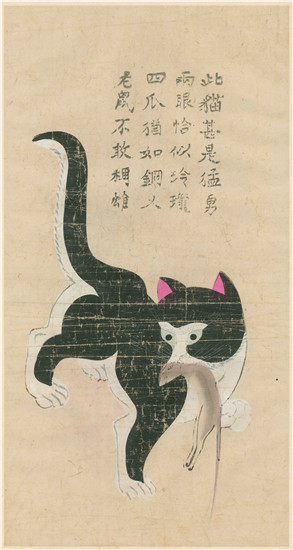 此貓甚是猛勇
兩眼恰似玲瓏
四爪猶如鋼人
老鼠不敢稱雄